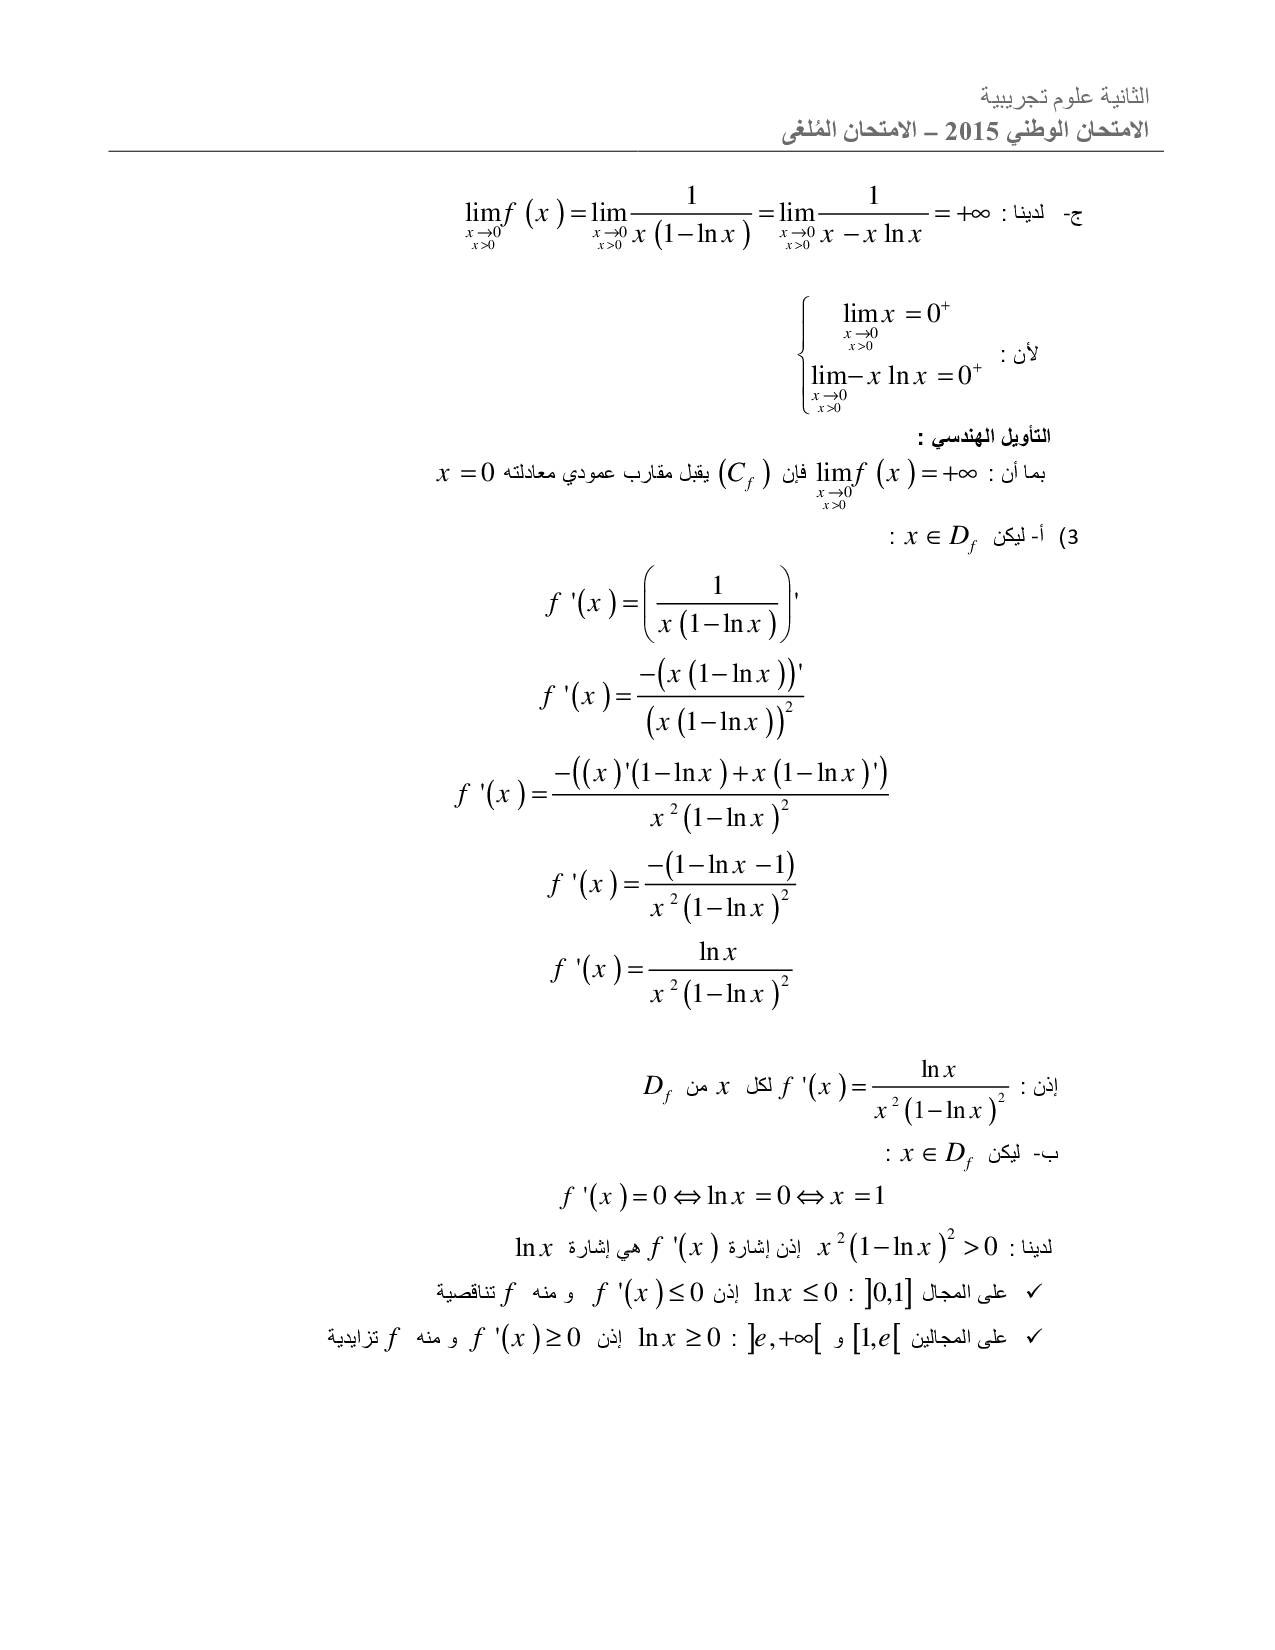 الثانية علوم تجريبية
الامتحان الوطني 2015 – الامتحان المُلغى
ج- لدينا : $\lim_{\substack{x \to 0 \\ x > 0}} f(x) = \lim_{\substack{x \to 0 \\ x > 0}} \frac{1}{x(1-\ln x)} = \lim_{\substack{x \to 0 \\ x > 0}} \frac{1}{x - x \ln x} = +\infty$
لأن : $\begin{cases} \lim_{\substack{x \to 0 \\ x > 0}} x = 0^+ \\ \lim_{\substack{x \to 0 \\ x > 0}} -x \ln x = 0^+ \end{cases}$
التأويل الهندسي :
بما أن : $\lim_{\substack{x \to 0 \\ x > 0}} f(x) = +\infty$ فإن $(C_f)$ يقبل مقارب عمودي معادلته $x = 0$
3) أ- ليكن $x \in D_f$ :
$f'(x) = \left(\frac{1}{x(1-\ln x)}\right)'$
$f'(x) = \frac{-(x(1-\ln x))'}{(x(1-\ln x))^2}$
$f'(x) = \frac{-((x)'(1-\ln x) + x(1-\ln x)')}{x^2(1-\ln x)^2}$
$f'(x) = \frac{-(1-\ln x-1)}{x^2(1-\ln x)^2}$
$f'(x) = \frac{\ln x}{x^2(1-\ln x)^2}$
إذن : $f'(x) = \frac{\ln x}{x^2(1-\ln x)^2}$ لكل $x$ من $D_f$
ب- ليكن $x \in D_f$ :
$f'(x) = 0 \Leftrightarrow \ln x = 0 \Leftrightarrow x = 1$
لدينا : $x^2(1-\ln x)^2 > 0$ إذن إشارة $f'(x)$ هي إشارة $\ln x$
✓ على المجال $]0,1]$ : $\ln x \leq 0$ إذن $f'(x) \leq 0$ و منه $f$ تناقصية
✓ على المجالين $[1,e[$ و $]e,+\infty[$ : $\ln x \geq 0$ إذن $f'(x) \geq 0$ و منه $f$ تزايدية